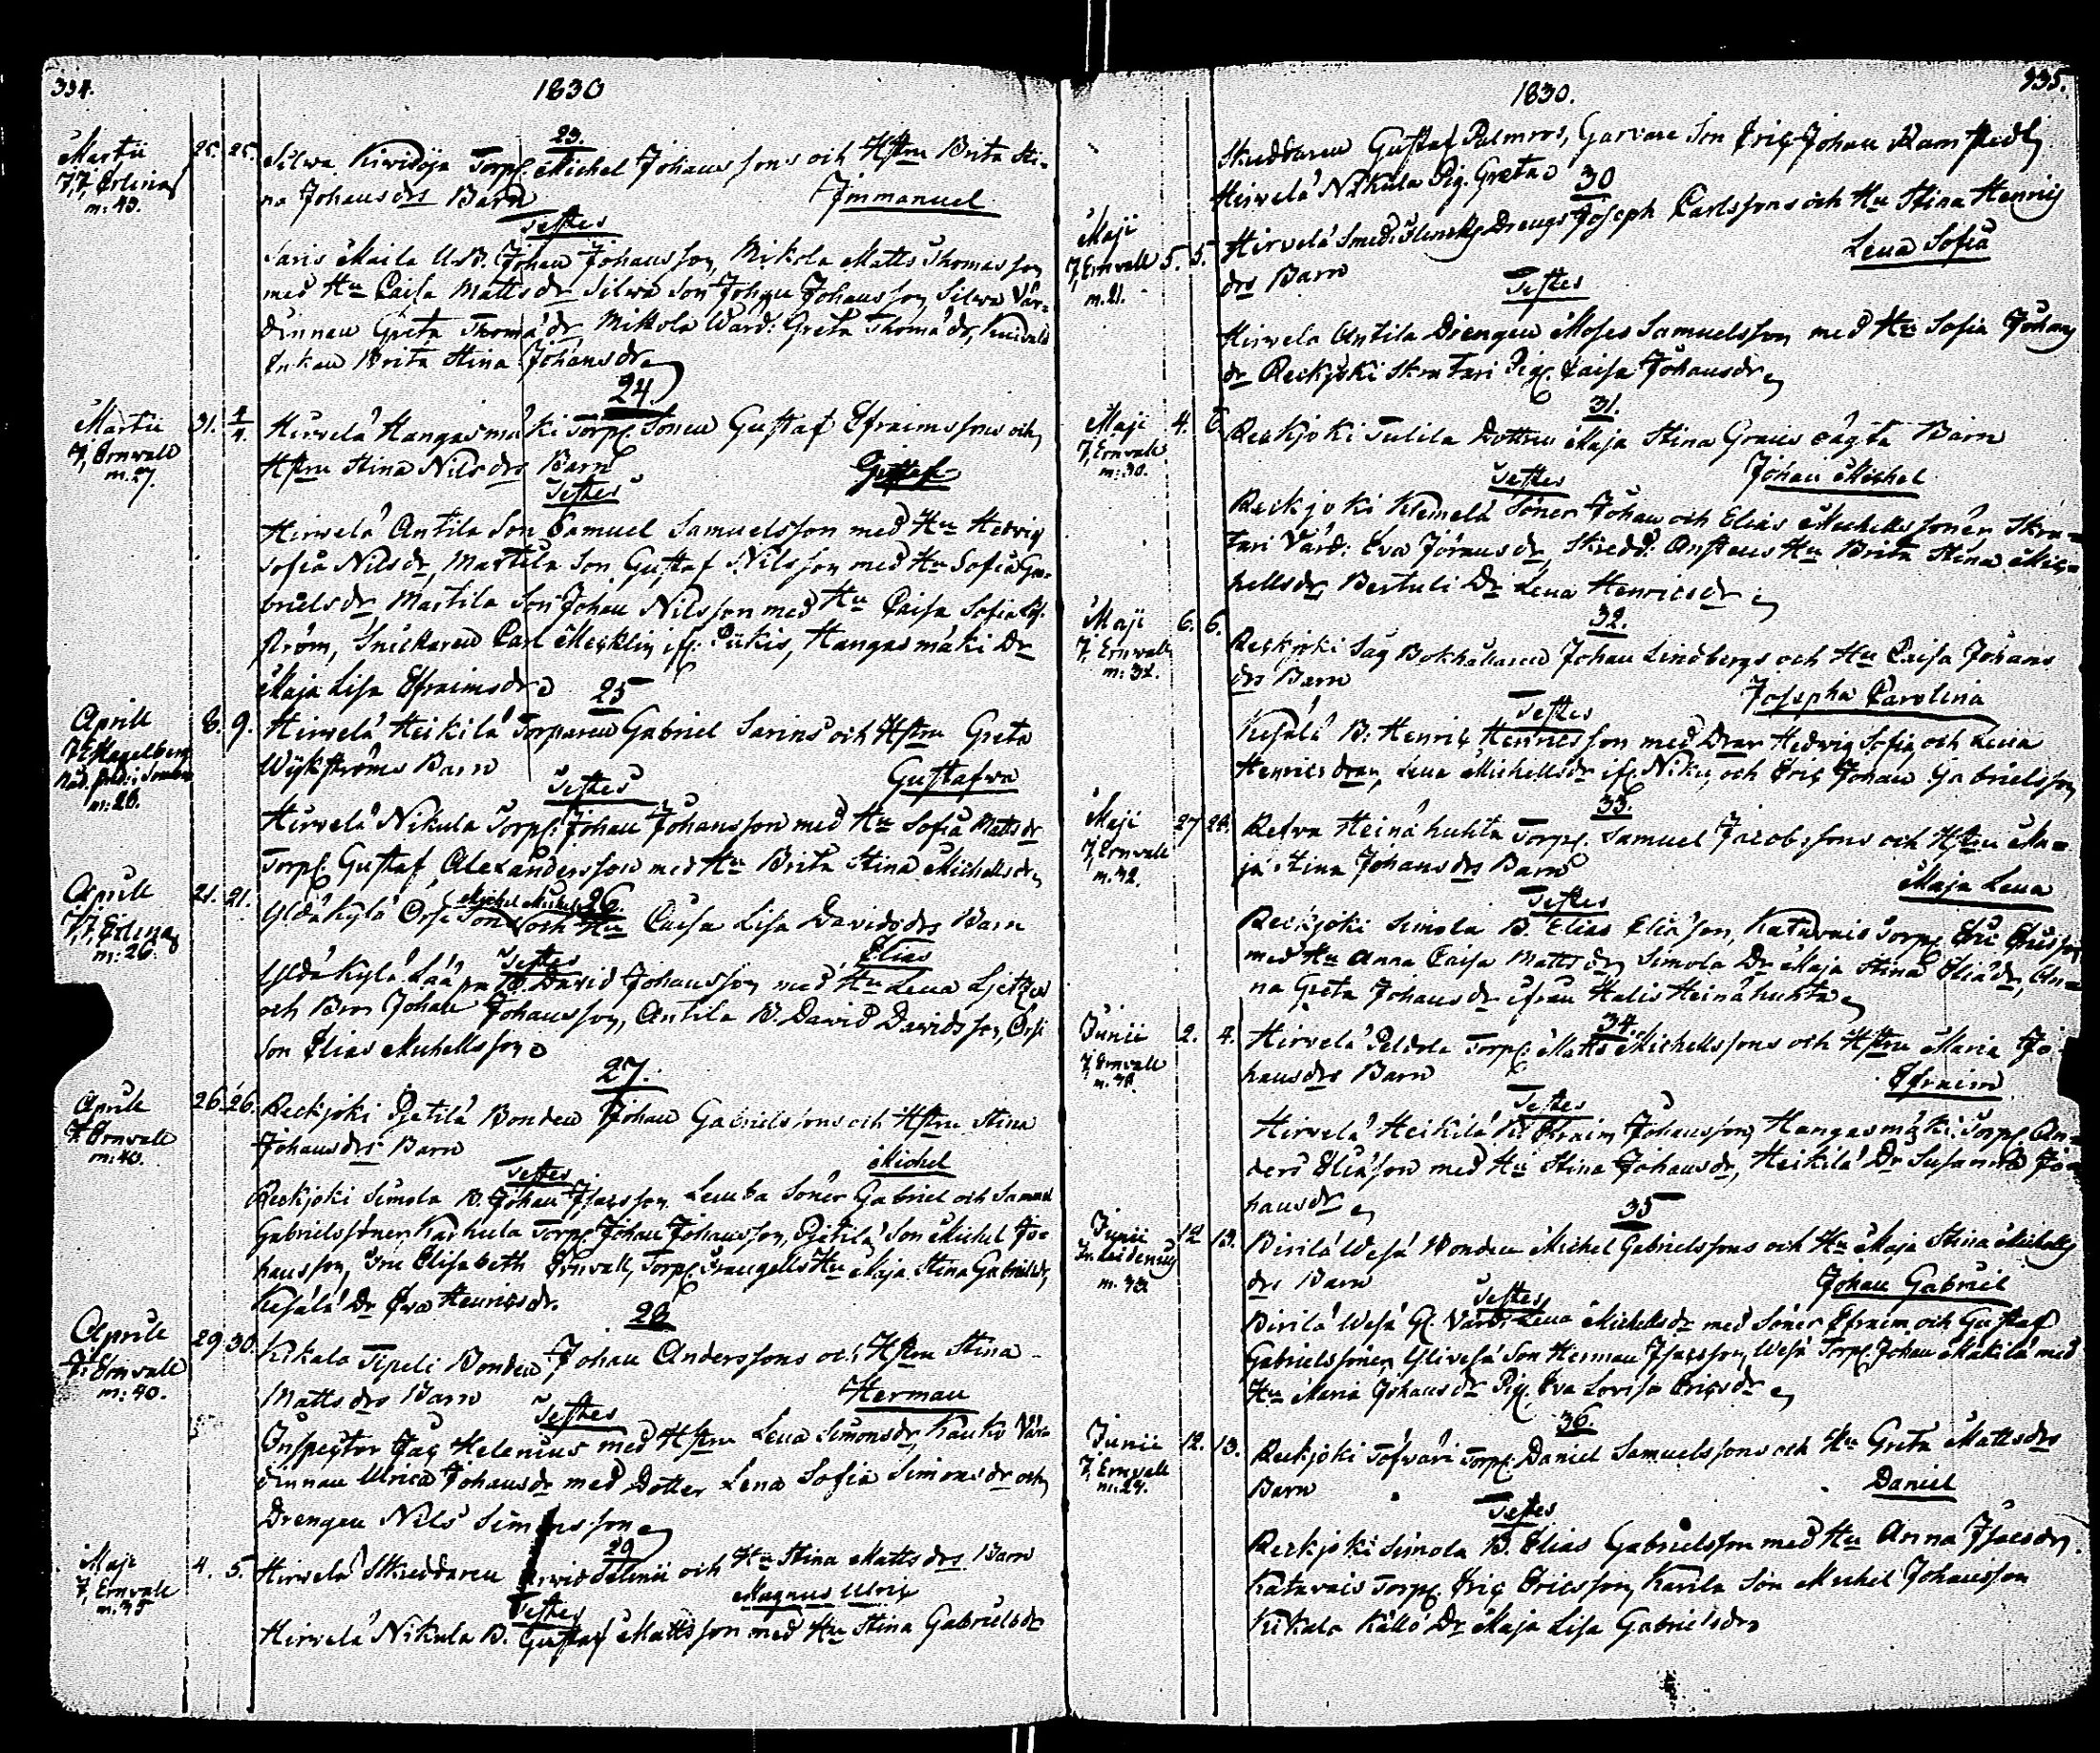 334.
1830
23.
Martii 25. 25. Silwa Kirvisöja Torp. Michel Johanssons och Hstru Brita Sti-
J.J. Erlinus
m: 43.
na Johansdrs Barn Immanuel
Testes
Saris Maila Johan Johansson, Mikola Matts Thomasson
med Hu Caisa Mattsdr Silwa Son Johan Johansson, Silwa Vär-
dinnan Greta Thomädr, Mikola Wärd: Greta Thomädr,
Enkan Brita Stina Johansdr
24.
Martii 31. 1/4. Hirvelä Hangasmäki Torp. Sonen Gustaf Efraimssons och
J. Ernvall
m. 27.
Hstru Stina Nilsdrs Barn Gustaf
Testes
Hirvelä Antila Son Samuel Samuelsson med Hu Hedvig
Sofia Nilsdr, Martila Son Gustaf Nilsson med Hu Sofia Ga-
brielsdr Martila Son Johan Nilsson med Hu Caisa Sofia
ström, Snickaren Carl Mecklin if: Piikis, Hangasmäki Dr
Maja Lisa Efraimsdr
25
Aprill 8. 9. Hirvelä Heikilä Torparen Gabriel Sarins och Hstru Greta
m: 28.
Wykströms Barn Gustafva
Testes
Hirvelä Nikula Torp. Johan Johansson med Hu Sofia Mattsdr
Torp. Gustaf Alexandersson med Hu Brita Stina Michelsdr
26.
Aprill 21. 21. Yldäkylä Orsi Son och Hu Caisa Lisa Davidsdrs Barn
J.J. Erlinus
m: 26.
Elias
Testes
Yldäkylä B. David Johansson med Hu Lena
och Bror Johan Johansson, Antila B. David Davidsson, Orsi
Son Elias Michellsson
27.
Aprill 26. 26. Reckjoki Pietilä Bonden Johan Gabrielssons och Hstru Stina
J. Ernvall
m: 40.
Johansdrs Barn Michel
Testes
Reckjoki Simola B. Johan Isacsson Söner Gabriel och Samuel
Gabrielssöner, Karhula Torp. Johan Johansson, Pietilä Son Michel Jo-
hansson, Fru Elisabeth Ernvall, Torp. Hu Maja Stina Gabrielsdr,
Kesälä Dr Eva Henricsdr.
28
Aprill 29. 30. Kikala Tipeli Bonden Johan Anderssons och Hstru Stina
J. Ernvall
m: 40.
Mattsdrs Barn Herman
Testes
Inspector Helenius med Hstru Lena Simonsdr, Kauko Vär-
dinnan Ulrica Johansdr med Dotter Lena Sofia Simonsdr och
Drengen Nils Simonsson
29
Maji 4. 5. Hirvelä Skreddaren Arvid Selinii och Hu Stina Mattsdrs Barn
J. Ernvall
m. 35
Magnus Ulric
Testes
Hirvelä Nikula B. Gustaf Mattsson med Hu Stina Gabrielsdr
335.
1830.
Skreddaren Gustaf Palmros, Garvare Son Eric Johan Ramstedt
Hirvelä Nikula Pig. Greta
30
Maji 5. 5. Hirvelä Smed: Drengs Joseph Carlssons och Hu Stina Henrics
J. Ernvall
m. 21.
drs Barn Lena Sofia
Testes
Hirvelä Antila Drengen Moses Samuelsson med Hu Sofia Johans
dr Reckjoki Skratari Pig. Caisa Johansdr
31.
Maji 4. 6. Reckjoki Tulila Dottren Maja Stina oägta Barn
J. Ernvall
m: 30.
Johan Michel
Testes
Reckjoki Klemelä Söner Johan och Elias Michellssöner, Skra-
tari Värd: Eva Göransdr, Skredd: Hu Brita Stina Mic-
hellsdr, Bertuli Dr Lena Henricsdr
32.
Maji 6. 6. Reckjoki Såg Bokhållaren Johan Lindbergs och Hu Caisa Johans
J. Ernvall
m: 32.
drs Barn Josepha Carolina
Testes
Kesälä B. Henric Henricsson med Drar Hedvig Sofia och Lena
Henricsdrar, Lena Michellsdr if: Niku, och Eric Johan Gabrielsson
33.
Maji 27. 28. Heinähuhta Torp. Samuel Jacobssons och Hstru Ma-
J. Ernvall
m. 32.
ja Stina Johansdrs Barn Maja Lena
Testes
Reckjoki Simola B. Elias Eliäson, Katavais Torp. Eric Ericsson
med Hu Anna Caisa Mattsdr, Simola Dr Maja Stina Eliädr, An-
na Greta Johansdr ifrån Halis Heinähuhta
34.
Junii 2. 4. Hirvelä Peldola Torp. Matts Michellssons och Hstru Maria Jo-
J. Ernvall
hansdrs Barn Efraim
Testes
Hirvelä Heikilä B. Efraim Johansson, Hangasmäki Torp. An-
ders Eliäson med Hu Stina Johansdr, Heikilä Dr Susanna Jo-
hansdr
35
Junii 12. 13. Pirilä Wesä Bonden Michel Gabrielssons och Hu Maja Stina Michells
m. 33.
drs Barn Johan Gabriel
Testes
Pirilä Wesä Gl. Värd: Lena Michellsdr med Söner Efraim och Gustaf
Gabrielssöner, Ylivesä Son Herman Isacsson, Wesä Torp. Johan Mäkilä med
Hu Maria Johansdr Pig. Eva Lovisa Ericsdr
36.
Junii 12. 13. Reckjoki Torp. Daniel Samuelssons och Hu Greta Mattsdrs
J. Ernvall
m. 29.
Barn Daniel
Testes
Reckjoki Simola B. Elias Gabrielsson med Hu Anna Isacsdr.
Katavais Torp. Eric Ericsson, Karila Son Michel Johansson
Kikala Källö Dr Maja Lisa Gabrielsdr